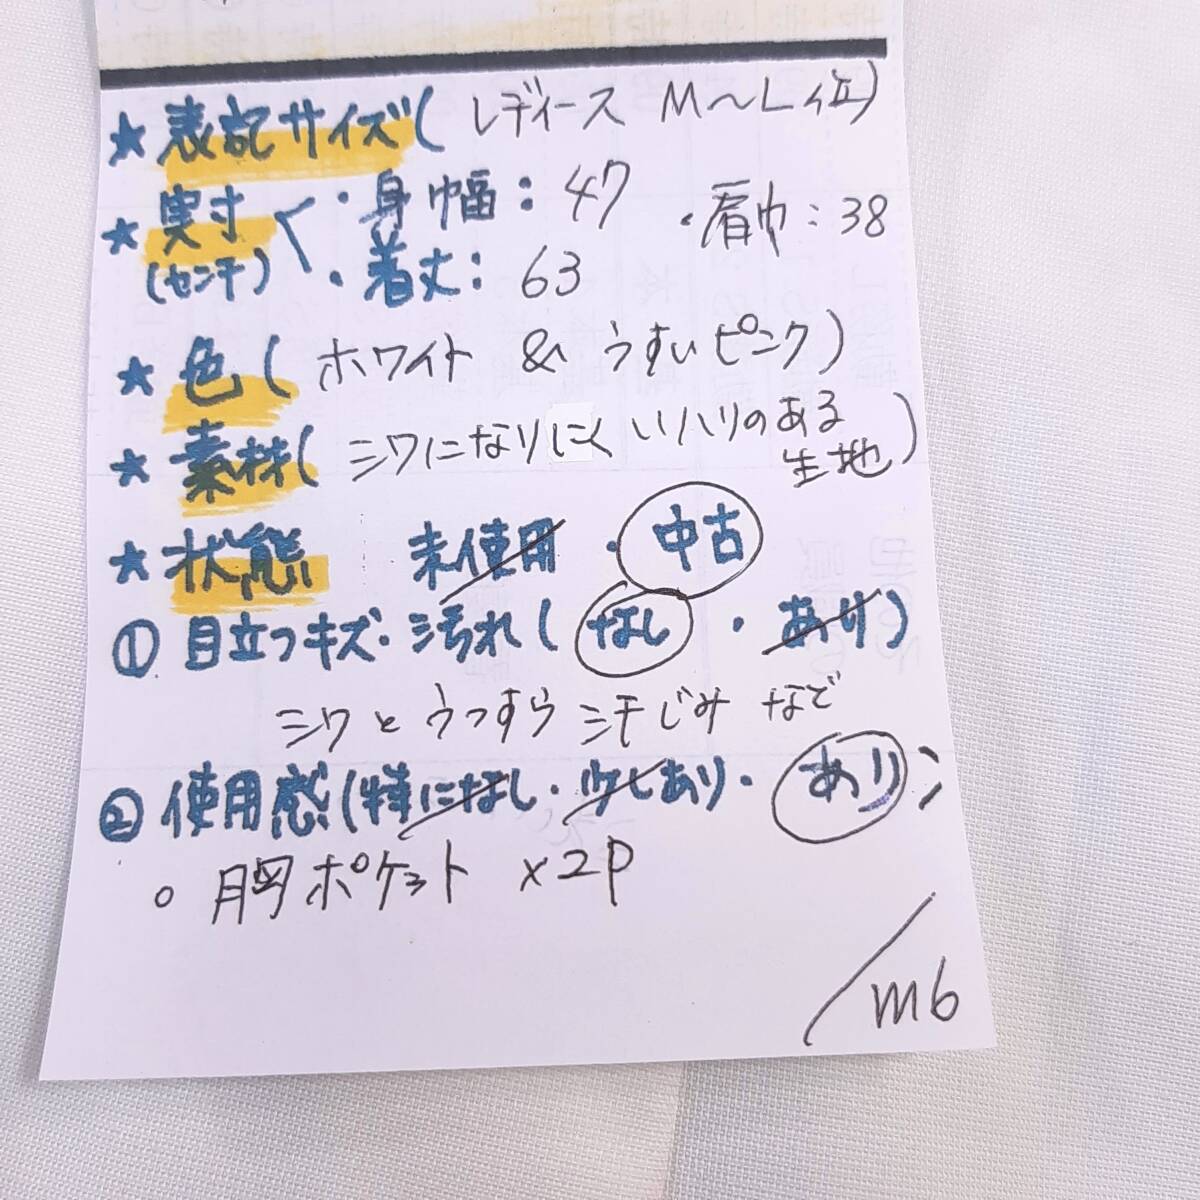 ★表記サイズ( レディース M〜L位)
★実寸(センチ) ・身幅: 47 ・肩巾: 38
・着丈: 63
★色( ホワイト & うすいピンク)
★素材( シワになりにくいハリのある生地)
★状態 未使用・中古
①目立つキズ・汚れ(なし・あり)
シワとうっすら汗じみなど
②使用感(特になし・少しあり・あり)
○胸ポケット ×2P
/m6